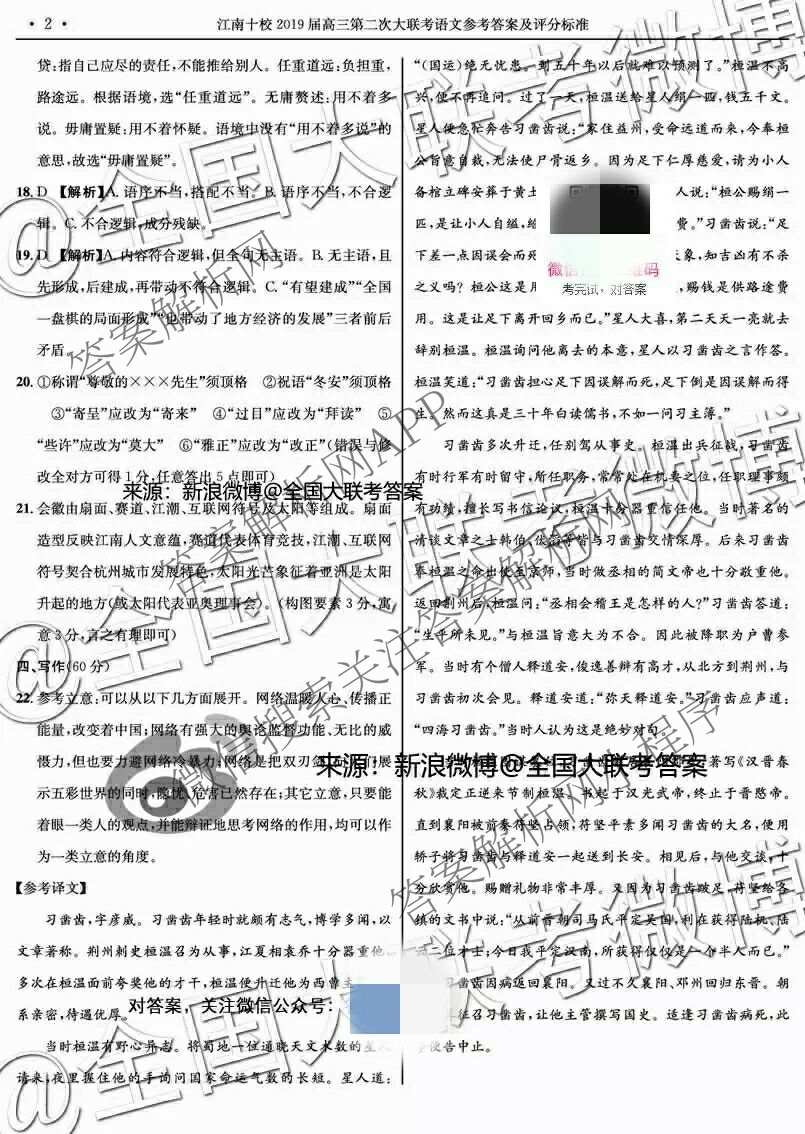 · 2 ·
江南十校2019届高三第二次大联考语文参考答案及评分标准
贷:指自己应尽的责任,不能推给别人。任重道远:负担重,
路途远。根据语境,选“任重道远”。无庸赘述:用不着多
说。毋庸置疑:用不着怀疑。语境中没有“用不着多说”的
意思,故选“毋庸置疑”。
18. D 【解析】A. 语序不当,搭配不当。B. 语序不当,不合逻
辑。C. 不合逻辑,成分残缺。
19. D 【解析】A. 内容符合逻辑,但全句无主语。B. 无主语,且
先形成,后建成,再带动不符合逻辑。C. “有望建成”“全国
一盘棋的局面形成”“也带动了地方经济的发展”三者前后
矛盾。
20. ①称谓“尊敬的×××先生”须顶格 ②祝语“冬安”须顶格
③“寄呈”应改为“寄来” ④“过目”应改为“拜读” ⑤
“些许”应改为“莫大” ⑥“雅正”应改为“改正”(错误与修
改全对方可得1分,任意答出5点即可)
21. 会徽由扇面、赛道、江潮、互联网符号及太阳等组成。扇面
造型反映江南人文意蕴,赛道代表体育竞技,江潮、互联网
符号契合杭州城市发展特色,太阳光芒象征着亚洲是太阳
升起的地方(或太阳代表亚奥理事会)。(构图要素3分,寓
意3分,言之有理即可)
四、写作(60分)
22. 参考立意:可以从以下几方面展开。网络温暖人心,传播正
能量,改变着中国;网络有强大的舆论监督功能、无比的威
慑力,但也要力避网络冷暴力;网络是把双刃剑,向人们展
示五彩世界的同时,隐忧、危害已然存在;其它立意,只要能
着眼一类人的观点,并能辩证地思考网络的作用,均可以作
为一类立意的角度。
【参考译文】
习凿齿,字彦威。习凿齿年轻时就颇有志气,博学多闻,以
文章著称。荆州刺史桓温召为从事,江夏相袁乔十分器重他,
多次在桓温面前夸奖他的才干,桓温便升迁他为西曹主
系亲密,待遇优厚。
当时桓温有野心异志。将蜀地一位通晓天文术数的星人
请来,夜里握住他的手询问国家命运气数的长短。星人道:
“(国运)绝无忧患。到五十年以后就难以预测了。”桓温不高
兴,便不再追问。过了一天,桓温送给星人绢一匹,钱五千文。
星人便急忙奔告习凿齿说:“家住益州,受命远道而来,今奉桓
公旨意自裁,无法使尸骨返乡。因为足下仁厚慈爱,请为小人
备棺立碑安葬于黄土
人说:“桓公赐绢一
匹,是让小人自缢,给
费。”习凿齿说:“足
下差一点因误会而死
象,知吉凶有不杀
之义吗?桓公这是用
,赐钱是供路途费
用。这是让足下离开回乡而已。”星人大喜,第二天天一亮就去
辞别桓温。桓温询问他离去的本意,星人以习凿齿之言作答。
桓温笑道:“习凿齿担心足下因误解而死,足下倒是因误解而得
生。然而这真是三十年白读儒书,不如一问习主簿。”
习凿齿多次升迁,任别驾从事史。桓温出兵征战,习凿齿
有时行军有时留守,所任职务,常常处在机要之位,任职理事颇
有功绩,擅长写书信论议,桓温十分器重信任他。当时著名的
清谈文章之士韩伯、伏滔等皆与习凿齿交情深厚。后来习凿齿
奉桓温之命出使至京师,当时做丞相的简文帝也十分敬重他。
返回荆州后,桓温问:“丞相会稽王是怎样的人?”习凿齿答道:
“生平所未见。”与桓温旨意大为不合。因此被降职为户曹参
军。当时有个僧人释道安,俊逸善辩有高才,从北方到荆州,与
习凿齿初次会见。释道安道:“弥天释道安。”习凿齿应声道:
“四海习凿齿。”当时人认为这是绝妙对句。
著写《汉晋春
秋》裁定正逆来节制桓温。书起于汉光武帝,终止于晋愍帝。
直到襄阳被前秦苻坚占领,苻坚平素多闻习凿齿的大名,便用
轿子将习凿齿与释道安一起送到长安。相见后,与他交谈,十
分欣赏他。赐赠礼物非常丰厚。又因为习凿齿跛足,苻坚给各
镇的文书中说:“从前晋朝司马氏平定吴国,利在获得陆机、陆
云二位才士;今日我平定汉南,所获得仅仅是一个半人而已。”
习凿齿因病返回襄阳。又过不久襄阳、邓州回归东晋。朝
征召习凿齿,让他主管撰写国史。适逢习凿齿病死,此
事便告中止。
考完试,对答案
来源:新浪微博@全国大联考答案
来源:新浪微博@全国大联考答案
对答案,关注微信公众号:
@全国大联考微博
@全国大联考微博
答案解析网
答案解析网APP
微信搜索关注答案解析网
答案解析网小程序